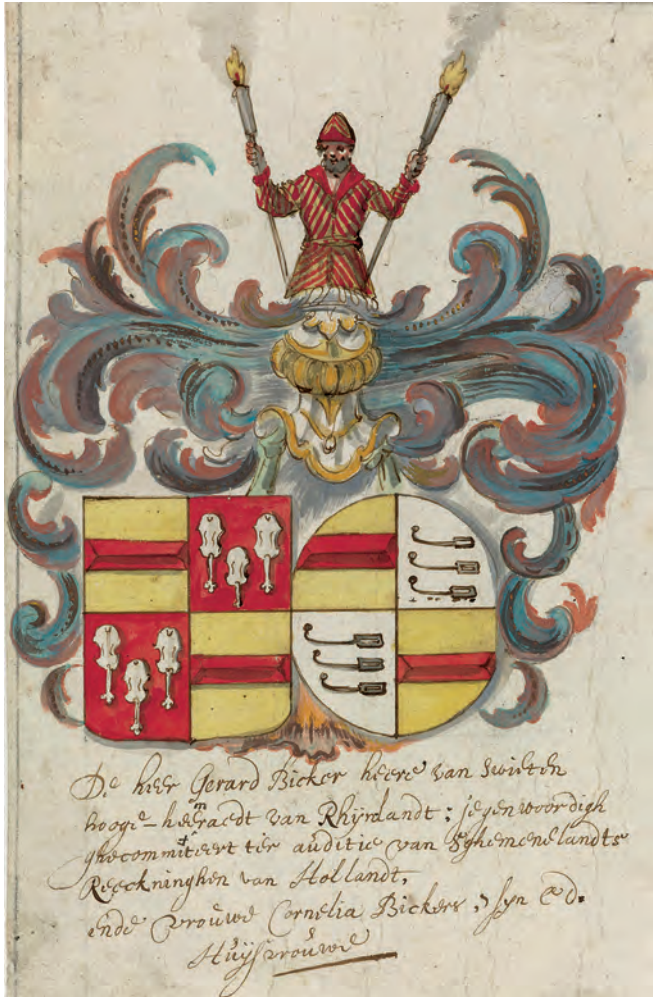 De heer Gerard Bicker heere van Swieten
hooge-heemraedt van Rhijnlandt; jegenwoordigh
ghecommitteert ter auditie van Sghemeenelandts
Reeckninghen van Hollandt,
ende vrouwe Cornelia Bickers, syn Ed.
Huijsvrouwe